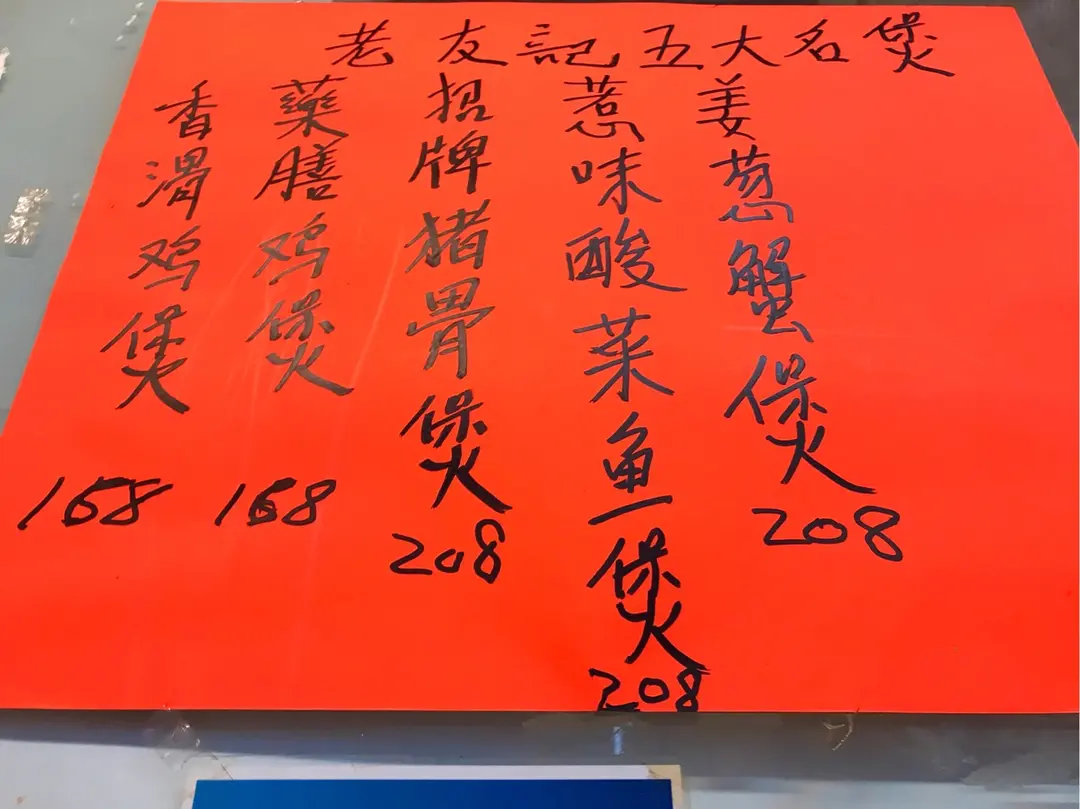 老友記五大名煲
姜葱蟹煲
208
惹味酸菜鱼煲
208
招牌猪骨煲
208
藥膳鸡煲
168
香滑鸡煲
168